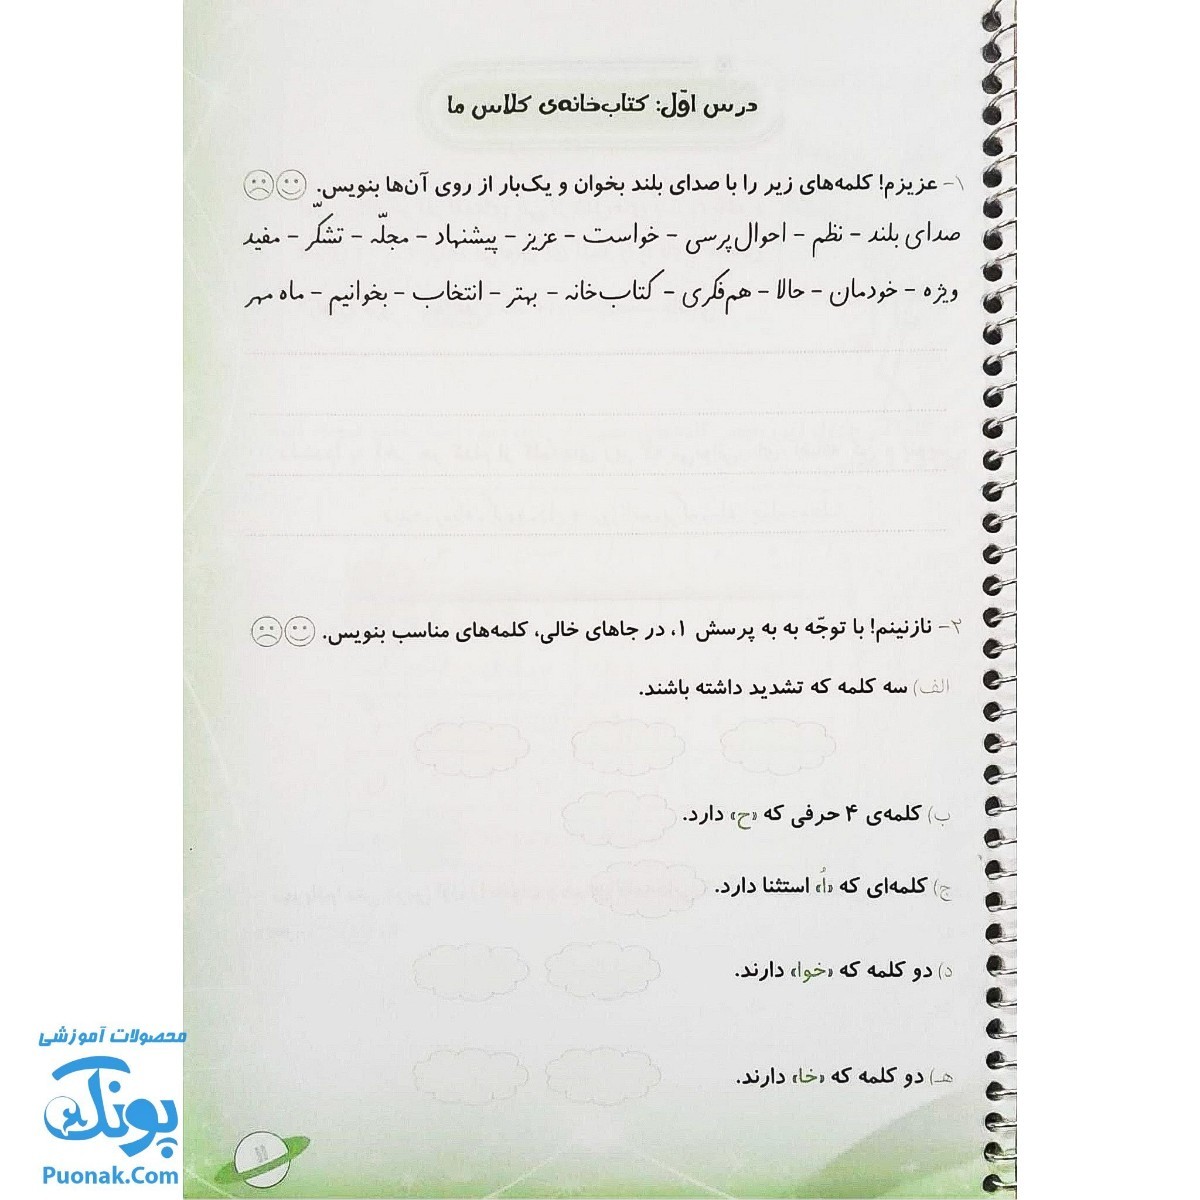 درس اوّل: کتاب‌خانه‌ی کلاس ما
۱- عزیزم! کلمه‌های زیر را با صدای بلند بخوان و یک‌بار از روی آن‌ها بنویس.
صدای بلند - نظم - احوال‌پرسی - خواست - عزیز - پیشنهاد - مجلّه - تشکّر - مفید
ویژه - خودمان - حالا - هم‌فکری - کتاب‌خانه - بهتر - انتخاب - بخوانیم - ماه مهر
۲- نازنینم! با توجّه به به پرسش ۱، در جاهای خالی، کلمه‌های مناسب بنویس.
الف) سه کلمه که تشدید داشته باشند.
ب) کلمه‌ی ۴ حرفی که «ح» دارد.
ج) کلمه‌ای که «اُ» استثنا دارد.
د) دو کلمه که «خوا» دارند.
هـ) دو کلمه که «خا» دارند.
۱۱
محصولات آموزشی
پونک
Puonak.Com